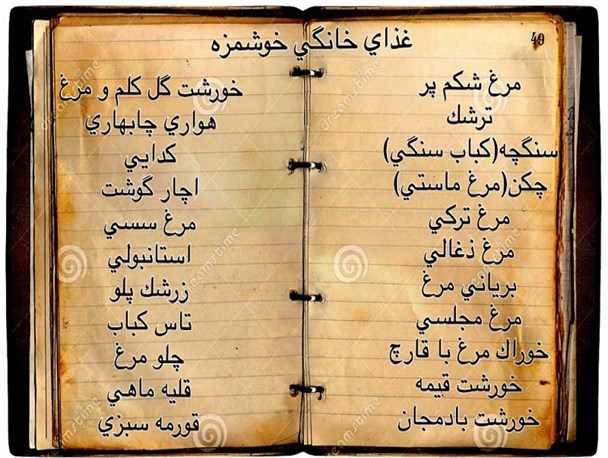 غذاي خانگي خوشمزه
49
مرغ شکم پر
ترشك
سنگچه(کباب سنگي)
چکن(مرغ ماستي)
مرغ ترکي
مرغ ذغالي
برياني مرغ
مرغ مجلسي
خوراك مرغ با قارچ
خورشت قيمه
خورشت بادمجان
خورشت گل کلم و مرغ
هواري چابهاري
کدايي
اچار گوشت
مرغ سسي
استانبولي
زرشك پلو
تاس کباب
چلو مرغ
قليه ماهي
قورمه سبزي
dreamstime
dreamstime
dreamstime
dreamstime